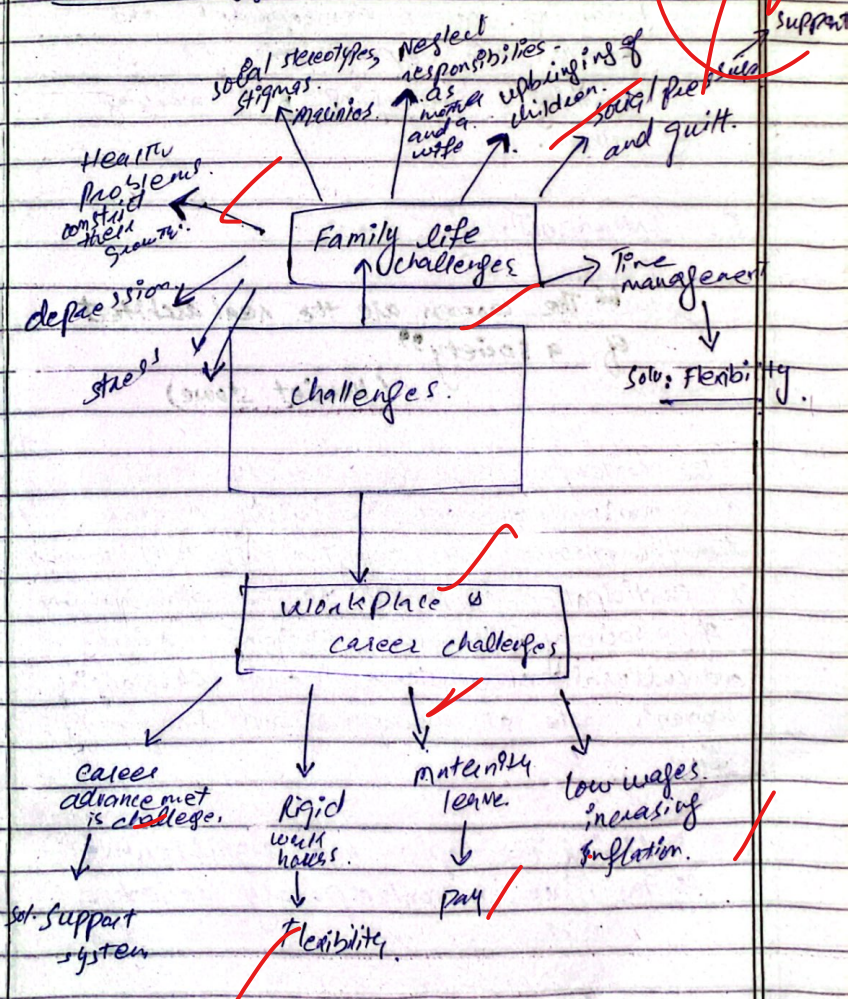 support
social stereotypes,
stigmas.
Neglect
responsibilies-
as
mother
and a
wife
upbringing of
children.
social pressure
and guilt.
Health
problems.
constrict
their
growth.
depression
stress
Family life
challenges
Time
management
Solu: Flexibility.
challenges.
workplace &
career challenges
career
advancemet
is challege.
Sol. Support
system
Rigid
work
hours.
Flexibility.
maternity
leave.
pay
low wages.
increasing
inflation.